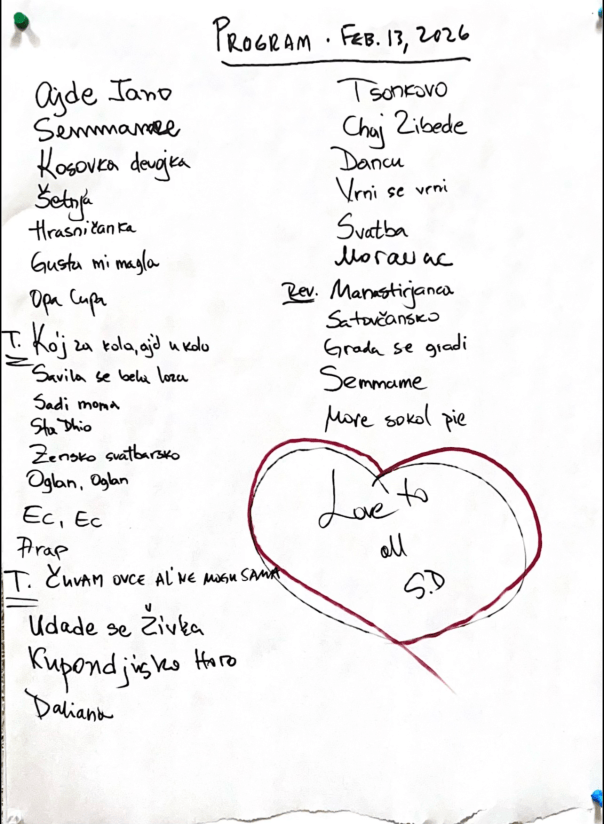 PROGRAM · FEB. 13, 2026
Ajde Jano
Semmamee
Kosovka devojka
Šetnja
Hrasničanka
Gusta mi magla
Opa Cupa
T. Koj za kola, ajd u kolo
Savila se bela loza
Sadi moma
Sta Dhio
Žensko svatbarsko
Oglan, Oglan
Ec, Ec
Arap
T. ČUVAM OVCE AL' NE MOGU SAMA
Udade se Živka
Kupondjisko Horo
Daliana
Tsonkovo
Chaj Zibede
Dancu
Vrni se vrni
Svatba
Moravac
Rev. Manastirjanca
Satovčansko
Grada se gradi
Semmame
More sokol pie
Love to
all
S.D